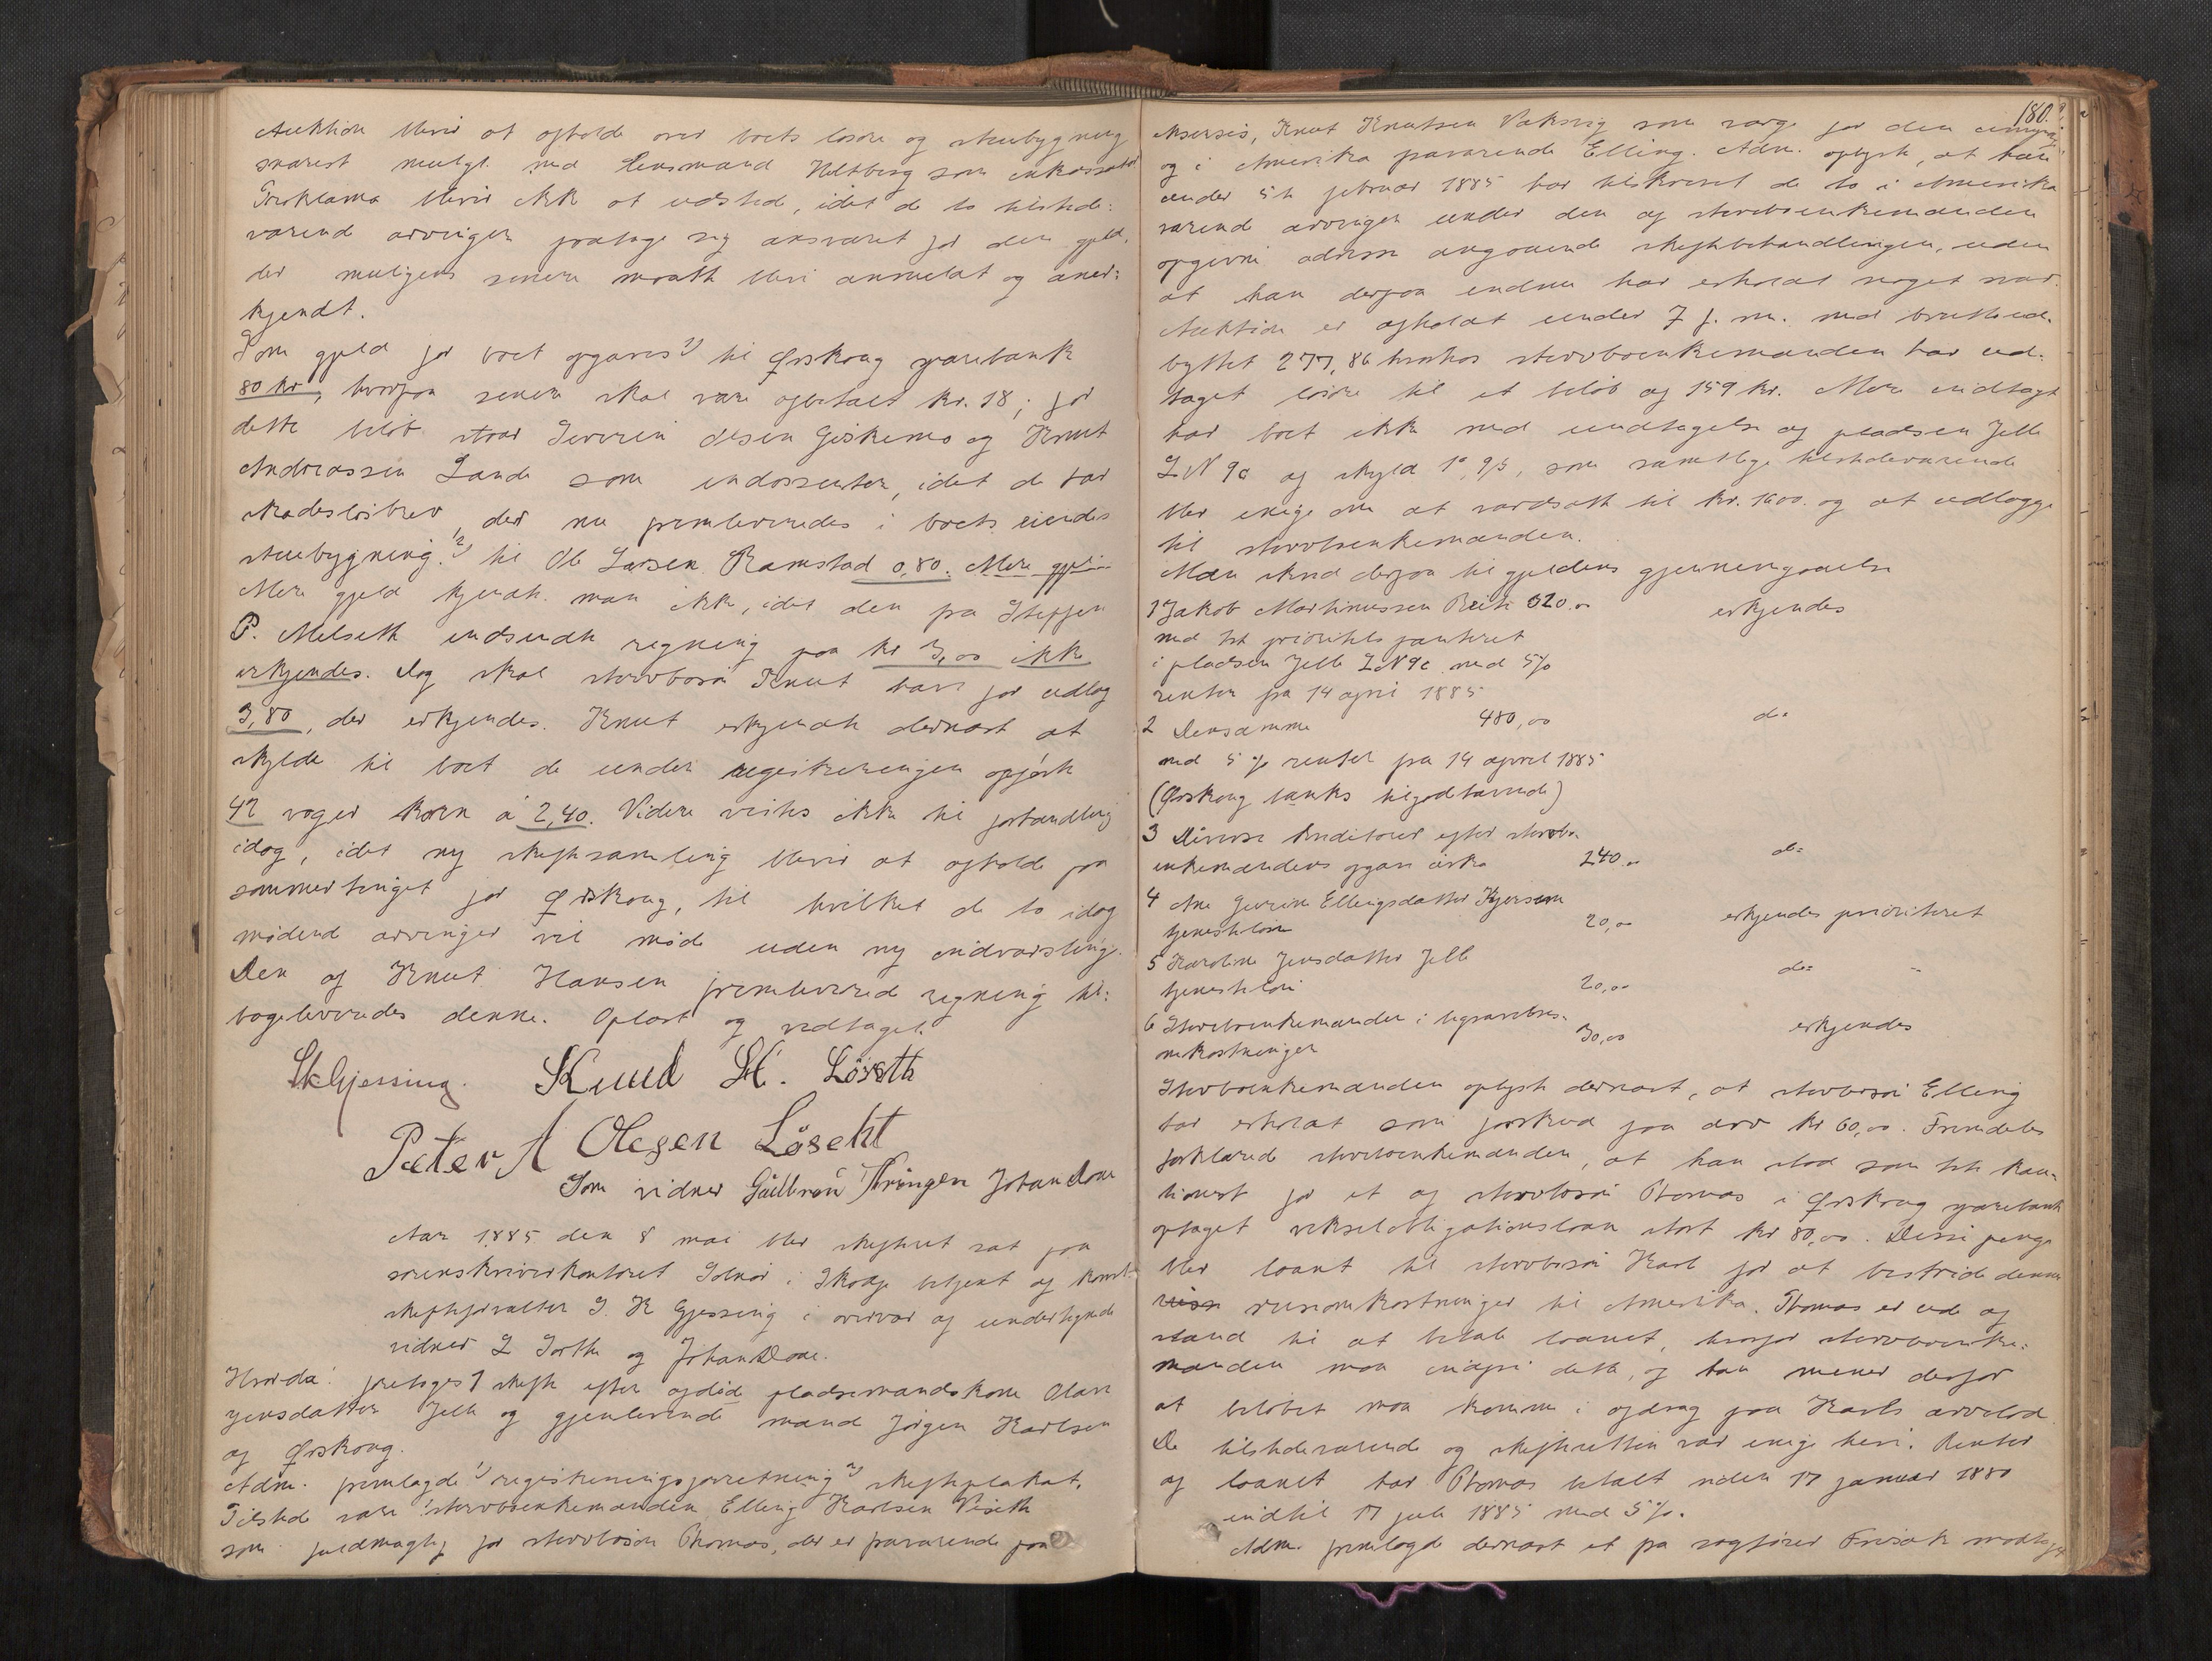 Auktion blivir at afholde over boets løsøre og stuebygning
snarest muligt med lensmand Heltberg som inkassator
Proklama blivir ikke at udstede, idet de to tilstede-
værende arvinger paatage sig ansvaret for den gjæld,
der muligens senere maatte blive anmeldt og aner-
kjendt.
Som gjæld for boet opgaves 1) til Ørskoug sparebank
80 kr, hvorpaa senere skal være afbetalt kr. 18; for
dette beløb staar Severin Olsen Giskemo og Knut
Andreassen Lande som endossenter, idet de har
skadesløsbrev, der nu fremleveredes i boets eiendes
stuebygning. 2) til Ole Larsen Ramstad 0,80. Mere gjæl
Mere gjæld kjendte man ikke, idet den fra Steffen
P. Melseth indsendte regning paa kr 3,00 ikke
erkjendes. Dog skal stervbosøn Knut have for udlæg
3,80, der erkjendes. Knut erkjendte dernæst at
skylde til boet de under registreringen opførte
42 voger korn á 2,40. Videre vistes ikke til forhandling
idag, idet ny skiftesamling blivir at afholde paa
sommertinget for Ørskoug, til hvilket de to idag
mødende arvinger vil møde uden ny indvarsling.
Den af Knut Hansen fremleverede regning til-
bageleveredes denne. Oplæst og vedtaget.
SkGjessing. Knud H. Löseth
Peter A Olesen Löseht
Som vidner Johan Done
Aar 1885 den 8 mai blev skifteret sat paa
sorenskriverkontoret Solnør i Skodje betjent af konst.
skifteforvalter S. K Gjessing i overvær af undertegnede
vidner L Sorthe og Johan Done.
Hvorda: foretoges 1 skifte efter afdøde pladsemandskone Olave
Jensdatter Jelle og gjenlevende mand Jørgen Karlsen
af Ørskoug.
Adm. fremlagde 1) registreringsforretning 2) skifteplakat.
Tilstede vare stervboenkemanden, Elling Karlsen Viseth
som fuldmægtig for stervbosøn Thomas, der er fraværende paa
180.
eksersis, Knut Knutsen Vaksvig som værge for den umynd.
og i Amerika fraværende Elling. Adm. oplyste, at han
under 5te februar 1885 har tilskrevet de to i Amerika
værende arvinger under den af stervboenkemanden
opgivne adresse angaaende skiftebehandlingen, uden
at han derpaa endnu har erholdt noget svar.
Auktion er afholdt under 7 f. m. med bruttoud-
byttet 277,86 hvorhos stervboenkemanden har ud-
taget løsøre til et beløb af 159 kr. Mere indtægt
har boet ikke med undtagelse af pladsen Jelle
L N 9c af skyld 1 ort 9 ß, som samtlige tilstedeværende
blev enige om at værdsætte til kr. 1600. og at udlægge
til stervboenkemanden.
Man skred derpaa til gjeldens gjennemgaaelse
1 Jakob Martinussen Reite 620.00 erkjendes
med 1ste prioritets panteret
i pladsen Jelle L N 9c med 5%
renter fra 14 april 1885
2 Densamme 480,00 do
med 5 % renter fra 14 april 1885
(Ørskoug banks tilgodehavende)
3 Diverse kreditorer efter stervbo-
enkemandens opgave cirka 240.00 do
4 Ane Gurine Ellingsdatter Kjersem
tjenesteløn 20,00 erkjendes prioriteret
5 Karoline Jensdatter Jelle
tjenesteløn 20,00 do -
6 Stervboenkemanden i begravelses-
omkostninger 30,00 erkjendes
Stervboenkemanden oplyste dernæst, at stervbosøn Elling
har erholdt som forskud paa arv kr 60,00. Fremdeles
forklarede stervboenkemanden, at han stod som 1ste kau-
tionist for et af stervbosøn Thomas i Ørskoug sparebank
optaget vekselobligationslaan stort kr 80,00. Disse penge
blev laant til stervbosøn Karl for at bestride dennes
reise reiseomkostninger til Amerika. Thomas er ude af
stand til at betale laanet, hvorfor stervboenke-
manden maa indfri dette, og han mener derfor
at beløbet maa komme i afdrag paa Karls arvelod
De tilstedeværende og skifteretten var enige heri. Renter
af laanet har Thomas betalt siden 17 januar 1880
indtil 17 juli 1885 med 5%.
Adm. fremlagde dernæst et fra sagfører Frisak modtaget